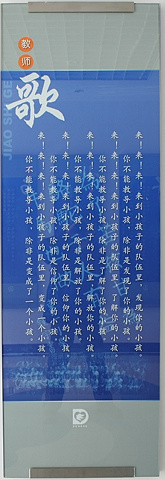 教师
歌
JIAO SHI GE
来！来！来！来到小孩子的队伍里，发现你的小孩。
你不能教导小孩，除非是发现了你的小孩。
来！来！来！来到小孩子的队伍里，了解你的小孩。
你不能教导小孩，除非是了解了你的小孩。
来！来！来！来到小孩子的队伍里，解放你的小孩。
你不能教导小孩，除非是解放了你的小孩。
来！来！来！来到小孩子的队伍里，信仰你的小孩。
你不能教导小孩，除非是信仰了你的小孩。
来！来！来！来到小孩子的队伍里，变成一个小孩。
你不能教导小孩，除非是变成了一个小孩。